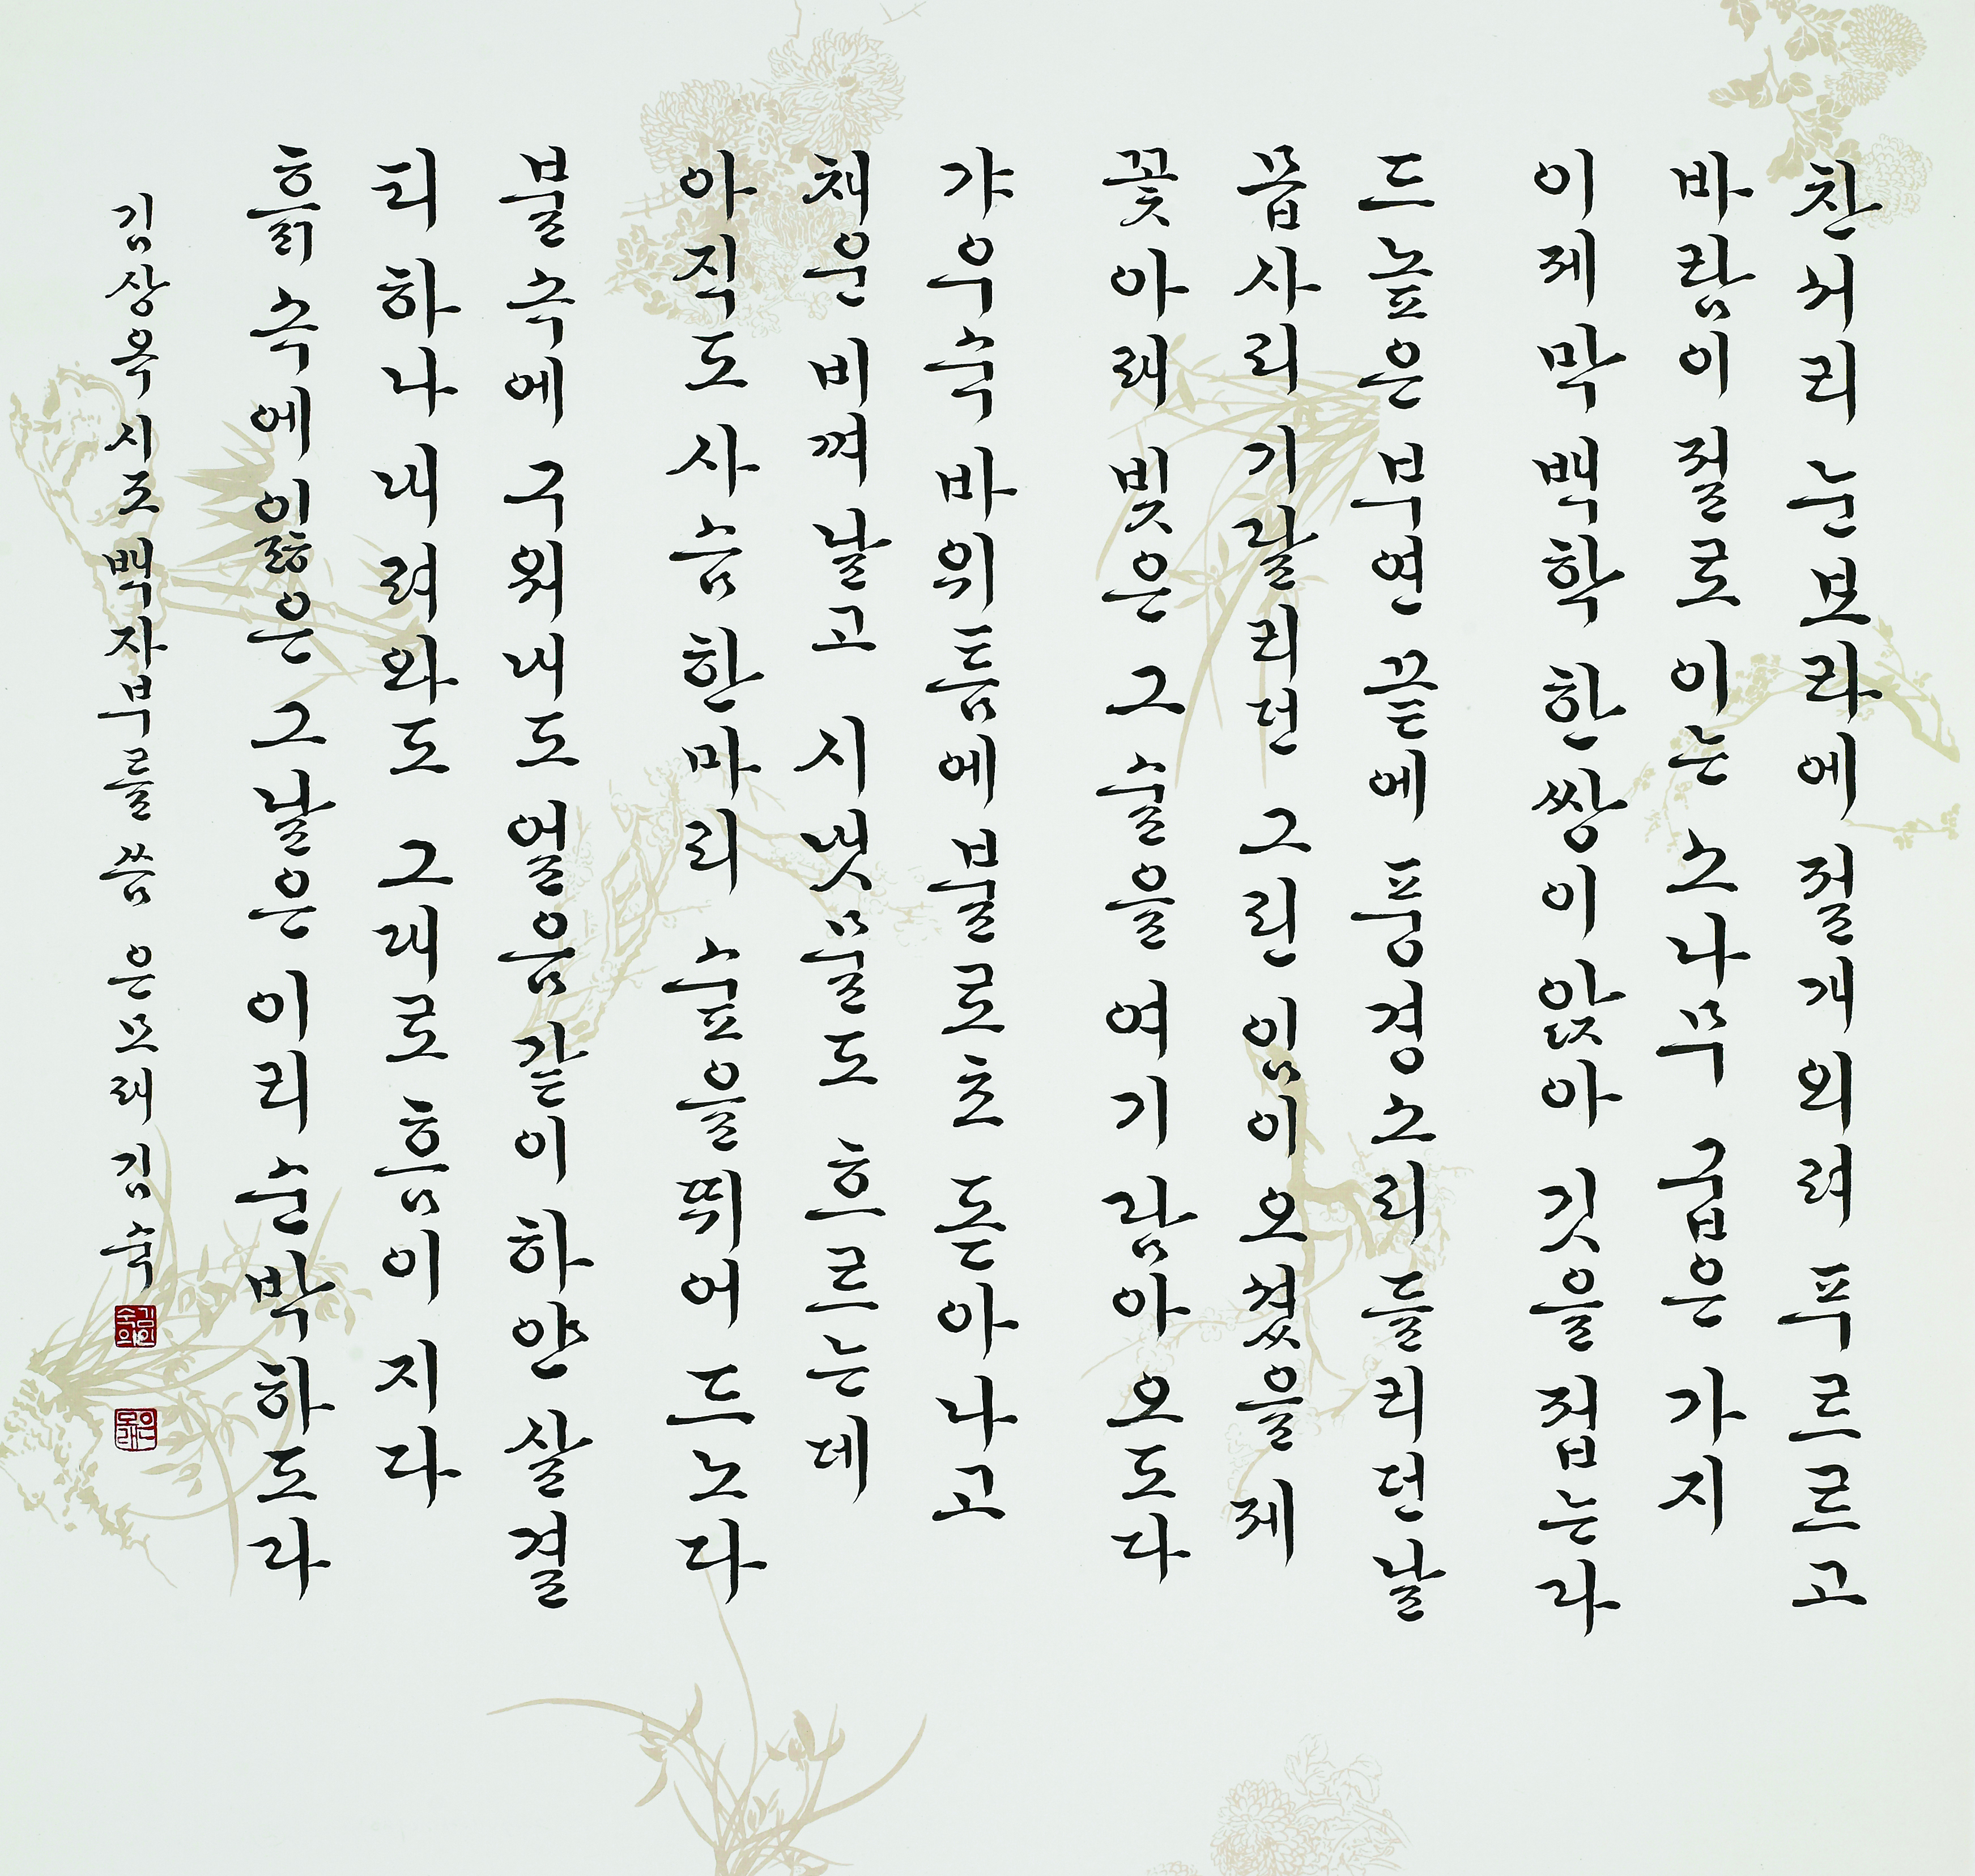 찬서리 눈보라에 절개 외려 푸르르고
바람이 절로 이는 소나무 굽은 가지
이제 막 백학 한 쌍이 앉아 깃을 접는라
드높은 부연 끝에 풍경소리 들리던 날
몹사리 기달리던 그린 임이 오셨을 제
꽃아래 빚은 그 술을 여기 담아 오도다
갸우숙 바위틈에 불로초 돋아나고
채운 비껴 날고 시냇물도 흐르는데
아직도 사슴 한 마리 숲을 뛰어드노다
불속에 구워내도 얼음같이 하얀 살결
티 하나 내려와도 그대로 흠이 지다
흙속에 이룲은 그날은 이리 순박하도라
김상옥 시조 백자부를 씀 은모래 김숙